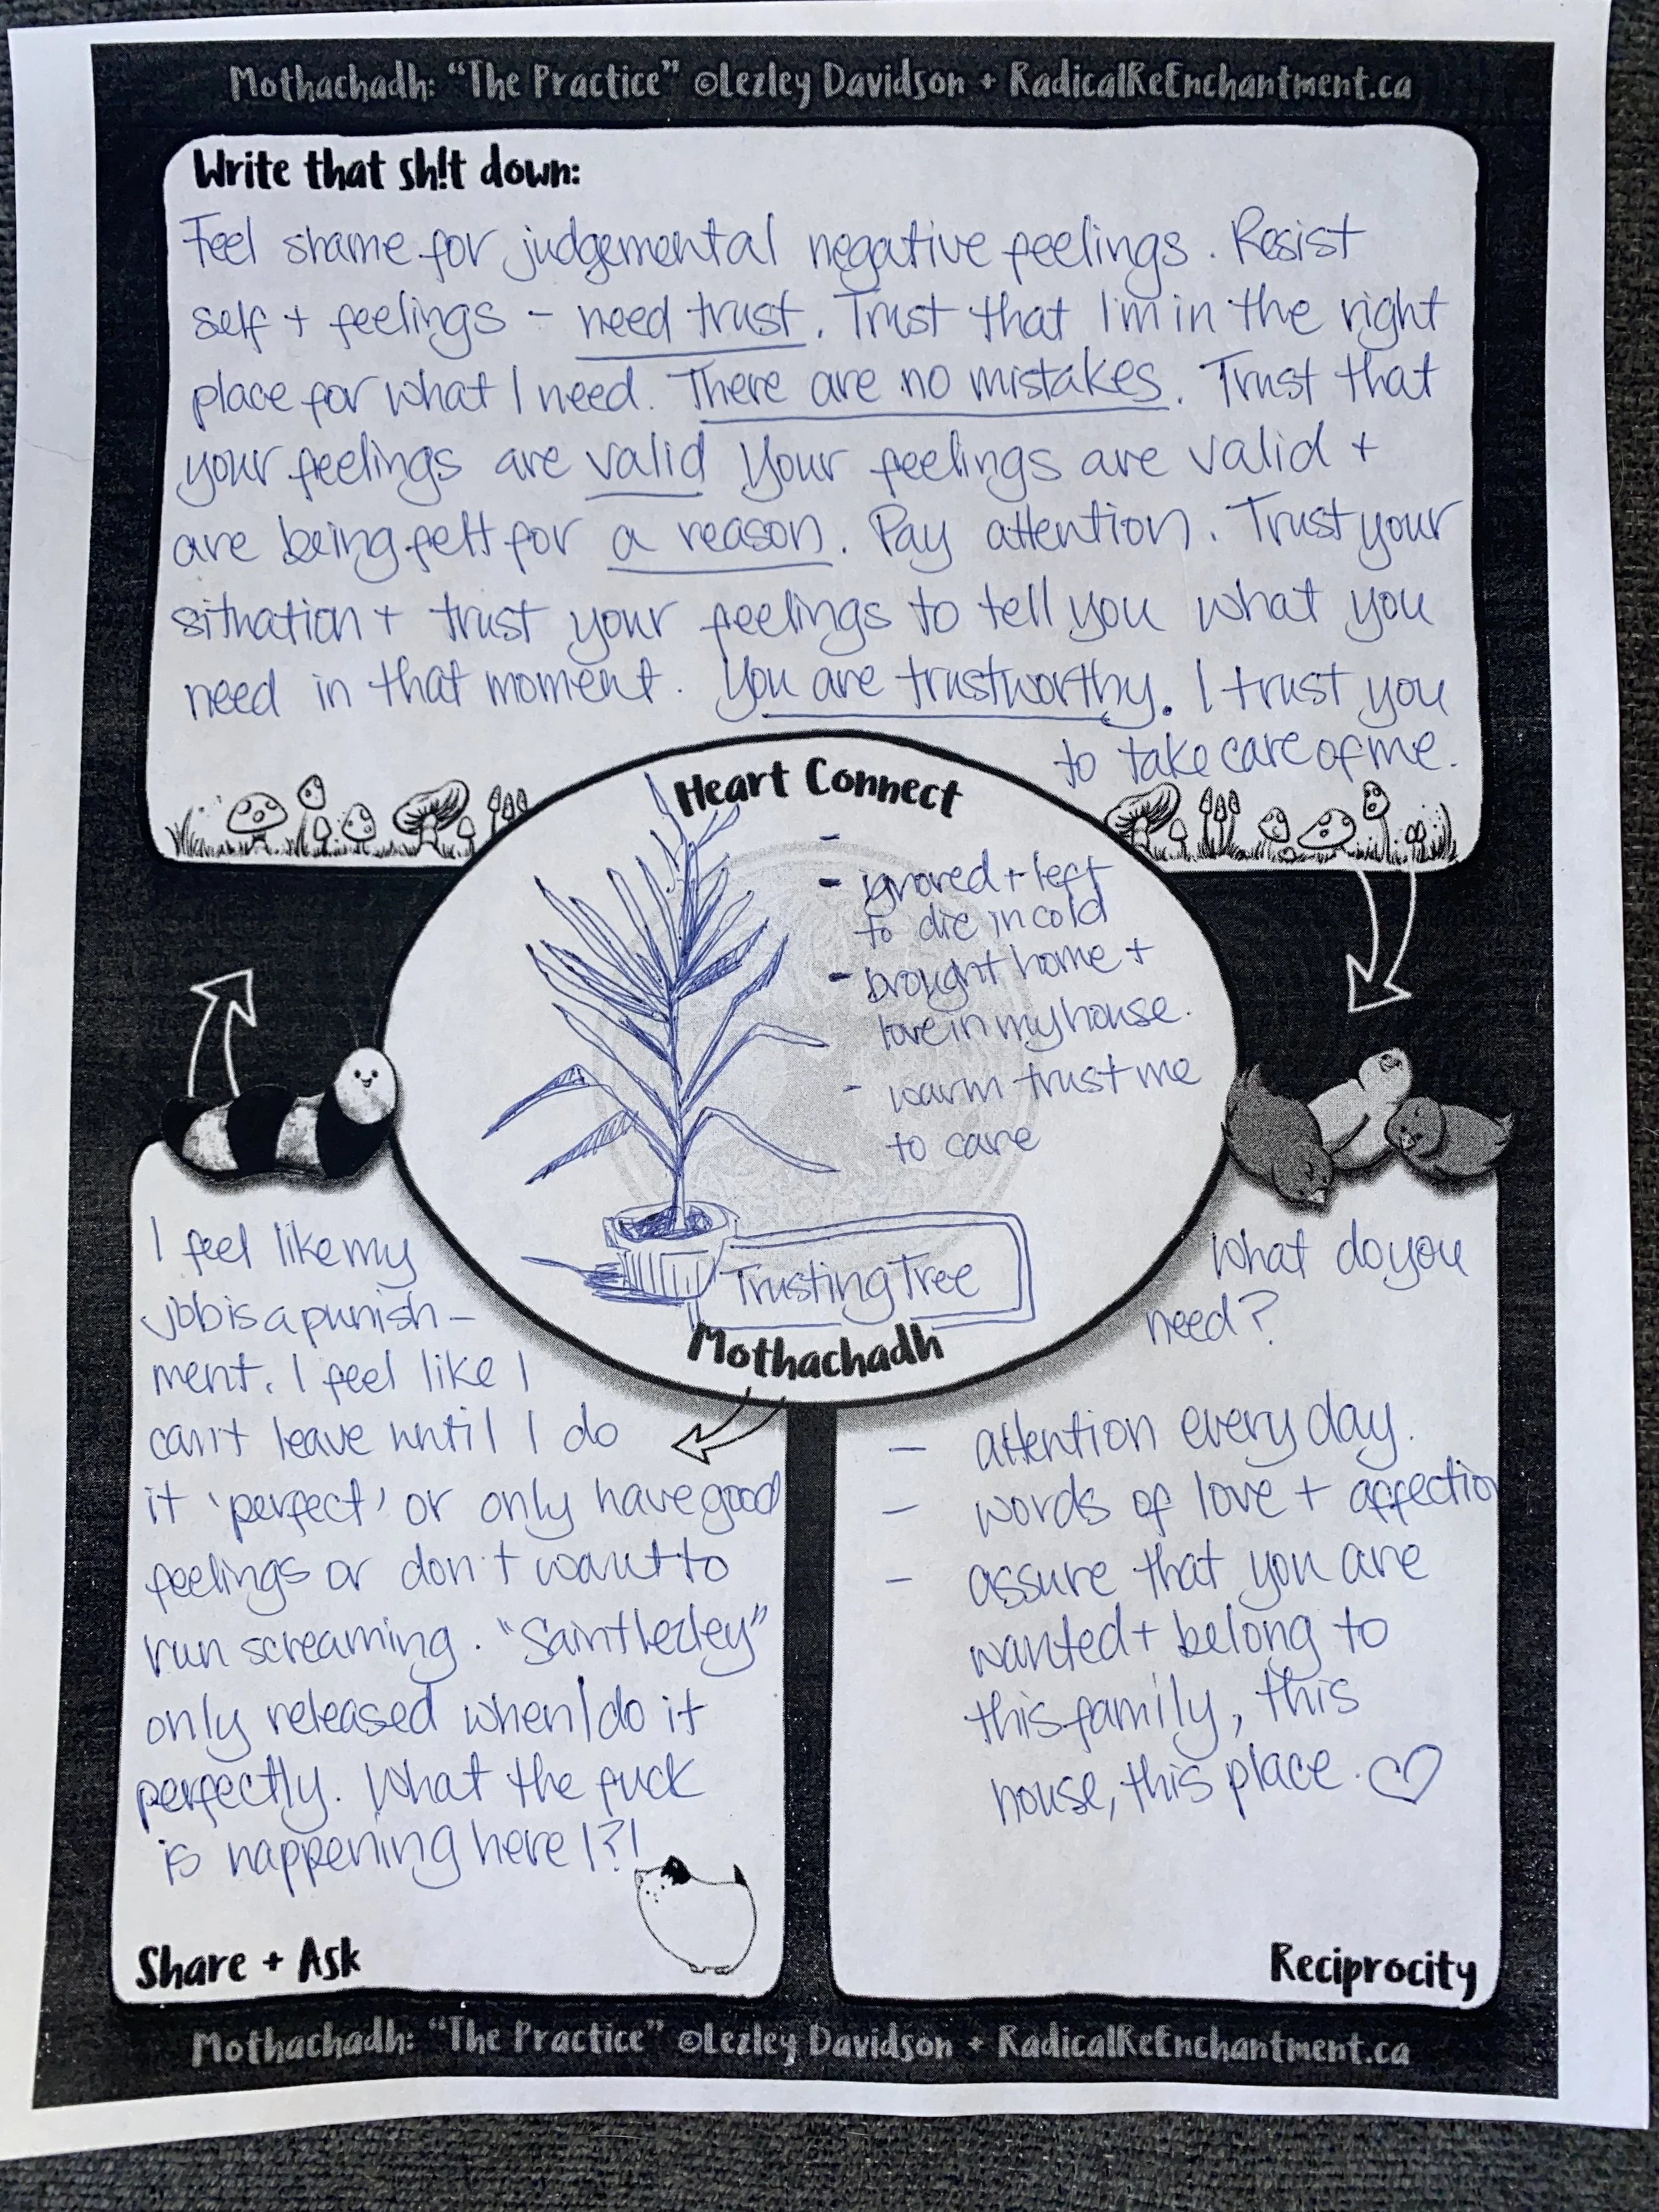 Mothachadh: “The Practice” ©Lezley Davidson + RadicalReEnchantment.ca
Write that sh!t down:
Feel shame for judgemental negative feelings. Resist
self + feelings - need trust. Trust that I'm in the right
place for what I need. There are no mistakes. Trust that
your feelings are valid Your feelings are valid +
are being felt for a reason. Pay attention. Trust your
situation + trust your feelings to tell you what you
need in that moment. You are trustworthy. I trust you
to take care of me.
Heart Connect
-
- ignored + left
to die in cold
- brought home +
love in my house.
- warm trust me
to care
Trusting Tree
Mothachadh
I feel like my
job is a punish-
ment. I feel like I
can't leave until I do
it 'perfect' or only have good
feelings or don't want to
run screaming. "Saint Lezley"
only released when I do it
perfectly. What the fuck
is happening here !?!
Share + Ask
What do you
need?
- attention every day.
- words of love + affection
- assure that you are
wanted + belong to
this family, this
house, this place. ♡
Reciprocity
Mothachadh: “The Practice” ©Lezley Davidson + RadicalReEnchantment.ca